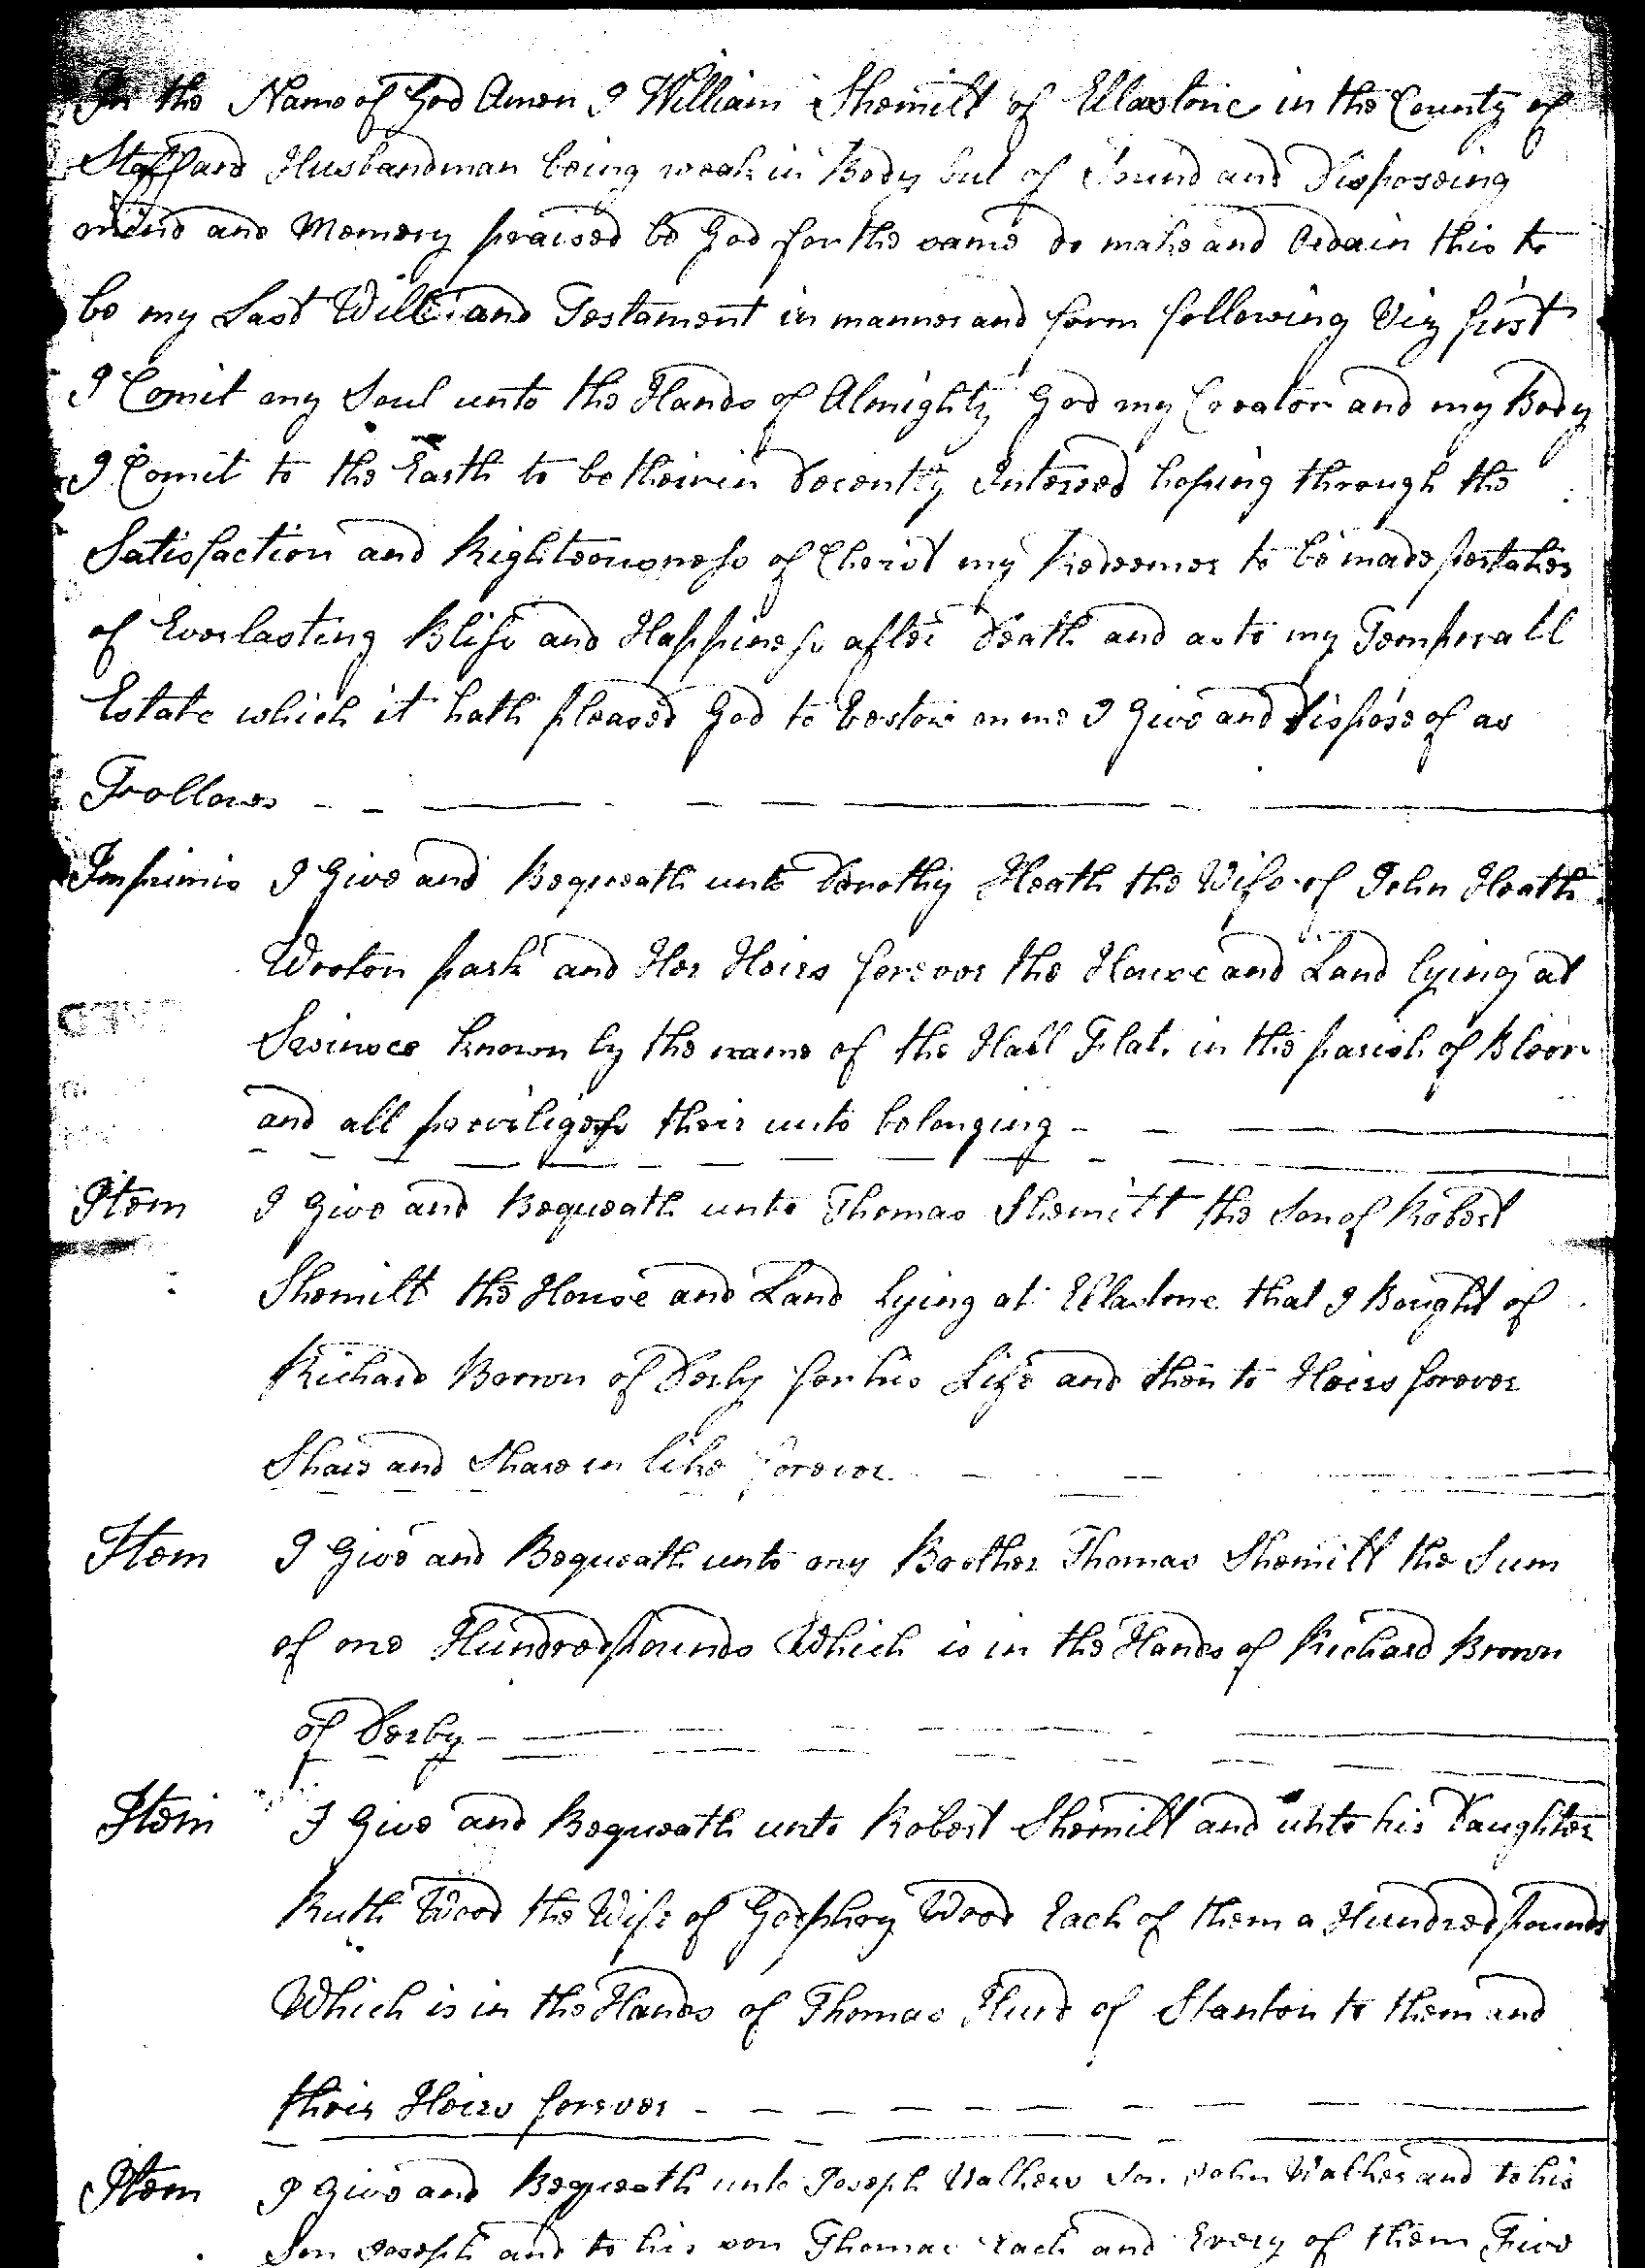 In the Name of God Amen I William Shemilt of Ellastone in the County of
Staffard Husbandman being weak in Body but of Sound and Disposeing
mind and Memory praised be God for the same do make and Ordain this to
be my Last Will and Testament in manner and form following Viz first
I Comit my Soul unto the Hands of Almighty God my Creator and my Body
I Comit to the Earth to be theirin Decently Interred hopeing through the
Satisfaction and Righteousness of Christ my Redeemer to be made pertaker
of Everlasting Bliss and Happiness after Death and as to my Temperall
Estate which it hath pleased God to bestow on me I Give and Dispose of as
Follows
Imprimis I Give and Bequeath unto Dorothy Heath the Wife of John Heath
Wooton park and Her Heirs forever the House and Land lying at
Swinsco known by the name of the Hall Flat in the parish of Bloor
and all priviligess their unto belonging
Item I Give and Bequeath unto Thomas Shemilt the Son of Robert
Shemilt the House and Land Lying at Ellastone that I Bought of
Richard Brown of Derby for his Life and then to Heirs forever
Share and Share in like forever
Item I Give and Bequeath unto my Brother Thomas Shemilt the Sum
of one Hundred pounds Which is in the Hands of Richard Brown
of Derby
Item I Give and Bequeath unto Robert Shemilt and unto his Daughter
Ruth Wood the Wife of Godphry Wood Each of them a Hundred pounds
Which is in the Hands of Thomas Hurd of Stanton to them and
their Heirs forever
Item I Give and Bequeath unto Joseph Walkers Son John Walker and to his
Son Joseph and to his son Thomas Each and Every of them Five